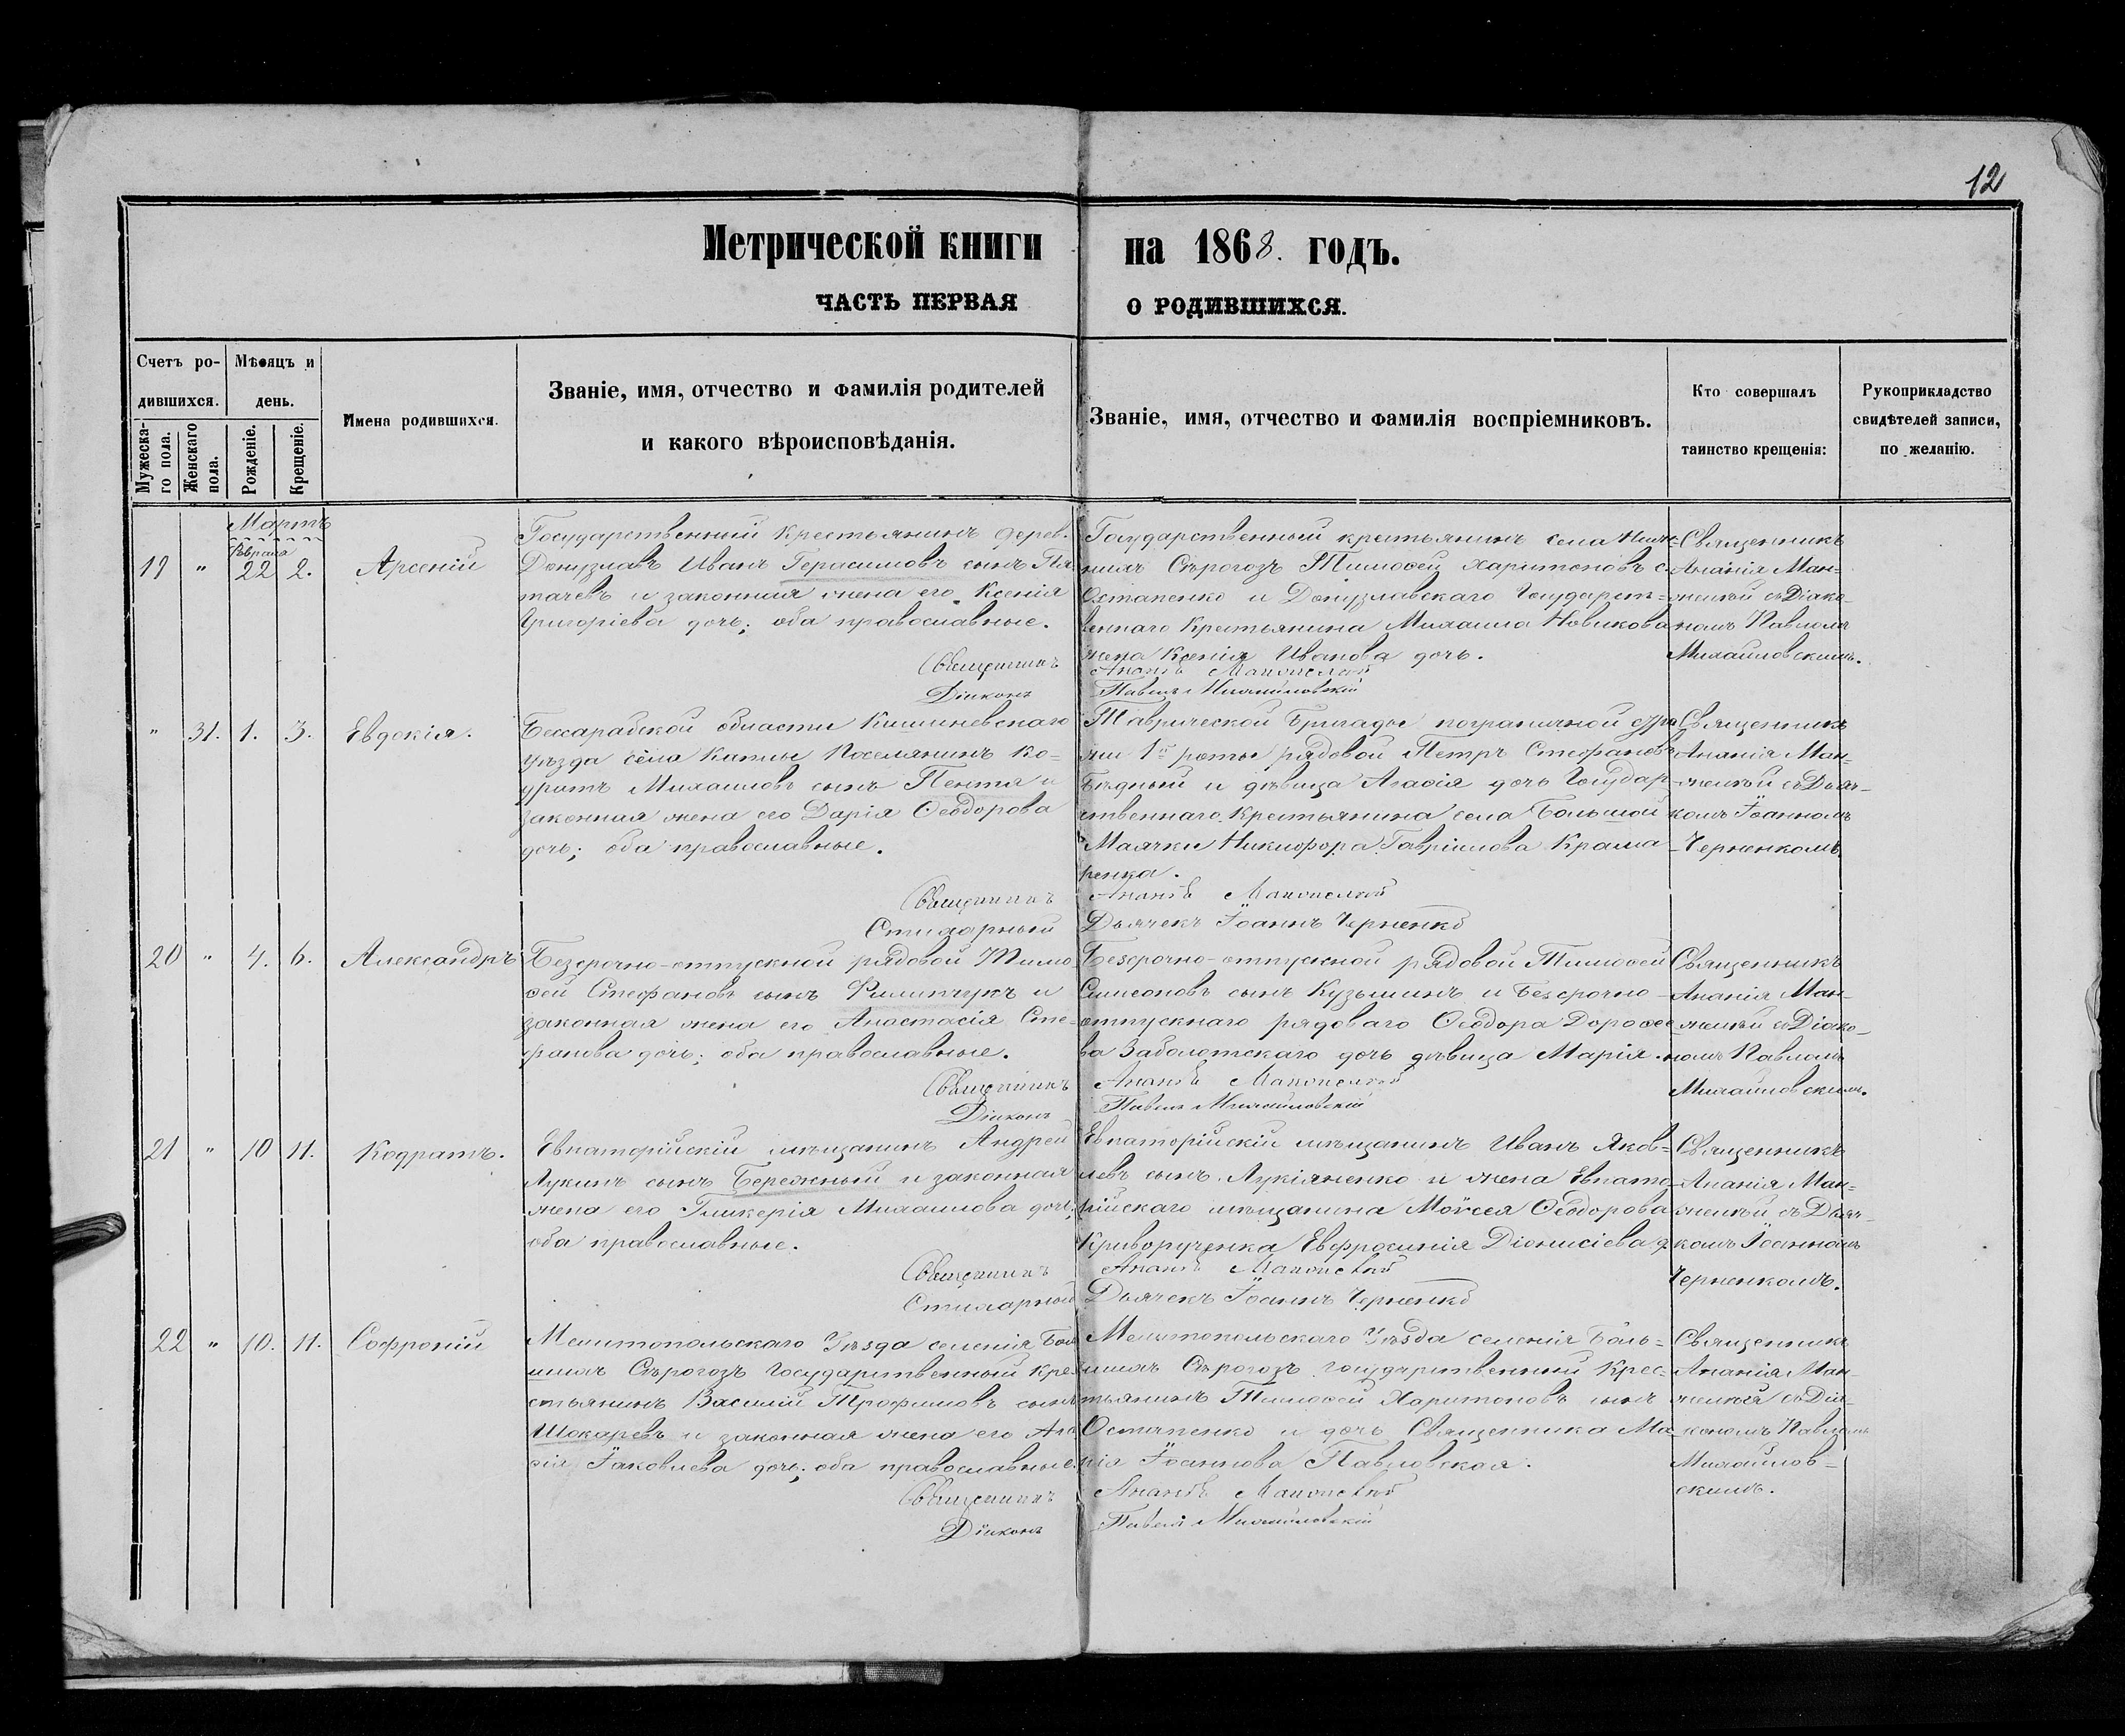 12
Метрической книги на 1868. годъ.
ЧАСТЬ ПЕРВАЯ О РОДИВШИХСЯ.
Счетъ ро-
дившихся.
Мужеска-
го пола.
Женскаго
пола.
Мѣсяцъ и
день.
Рожденіе.
Крещеніе.
Имена родившихся.
Званіе, имя, отчество и фамилія родителей
и какого вѣроисповѣданія.
Званіе, имя, отчество и фамилія воспріемниковъ.
Кто совершалъ
таинство крещенія:
Рукоприкладство
свидѣтелей записи,
по желанію.
Мартъ
Февраля
19 " 22 2. Арсеній
Государственный крестьянинъ дерев.
Донузлавъ Иванъ Герасимовъ сынъ
тачевъ и законная жена его Ксенія
Григоріева дочь; оба православные.
Государственный крестьянинъ села
Сѣрогозъ Тимоѳей Харитоновъ с.
Остапенко и Донузлавскаго Государст-
веннаго крестьянина Михаила Новикова
жена Ксенія Иванова дочь.
Священникъ
Ананія Ман-
желѣй съ Діако-
номъ Павломъ
Михайловскимъ.
Священникъ
Діаконъ Павелъ Михайловскій
" 31. 1. 3. Евдокія.
Бессарабской области Кишиневскаго
уѣзда села Поселянинъ Ко-
дратъ Михаиловъ сынъ Пентя и
законная жена его Дарія Ѳеодорова
дочь; оба православные.
Таврической Бригады пограничной стра
жи 1й роты рядовой Петръ Стефановъ
Бѣдный и дѣвица Агаѳія дочь Государ-
ственнаго крестьянина села Большой
Маячки Никифора Гавріилова Крама
ренка.
Священникъ
Ананія Ман-
желѣй съ Дьяч-
комъ Іоанномъ
Черненкомъ.
Священникъ
Стихарный Дьячекъ Іоаннъ Черненко
20 " 4. 6. Александръ
Безсрочно-отпускной рядовой Тимо
ѳей Стефановъ сынъ Филипчукъ и
законная жена его Анастасія Сте-
фанова дочь; оба православные.
Безсрочно-отпускной рядовой Тимоѳей
Симеоновъ сынъ Кузьминъ и Безсрочно-
отпускнаго рядоваго Ѳеодора Дороѳее
ва Заболотскаго дочь дѣвица Марія.
Священникъ
Ананія Ман-
желѣй съ Діако-
номъ Павломъ
Михайловскимъ.
Священникъ
Діаконъ Павелъ Михайловскій
21 " 10 11. Кодратъ.
Евпаторійскій мѣщанинъ Андрей
Лукинъ сынъ Бережный и законная
жена его Гликерія Михаилова дочь;
оба православные.
Евпаторійскій мѣщанинъ Иванъ Яков-
левъ сынъ Лукіяненко и жена Евпато-
рійскаго мѣщанина Моѵсея Ѳеодорова
Криворученка Евфросинія Діонисіева д.
Священникъ
Ананія Ман-
желѣй съ Дьяч-
комъ Іоанномъ
Черненкомъ.
Священникъ
Стихарный Дьячекъ Іоаннъ Черненко
22 " 10. 11. Софроній
Мелитопольскаго Уѣзда селенія Боль
шихъ Сѣрогозъ Государственный Кре-
стьянинъ Василій Трофимовъ сынъ
Шокаревъ и законная жена его Ага
ѳія Іаковлева дочь; оба православные.
Мелитопольскаго Уѣзда селенія Боль-
шихъ Сѣрогозъ государственный Крес-
тьянинъ Тимоѳей Харитоновъ сынъ
Остапенко и дочь Священника Ма-
рія Іоаннова Павловская.
Священникъ
Ананія Ман-
желѣй съ Діа-
кономъ Павломъ
Михайлов-
скимъ.
Священникъ
Діаконъ Павелъ Михайловскій